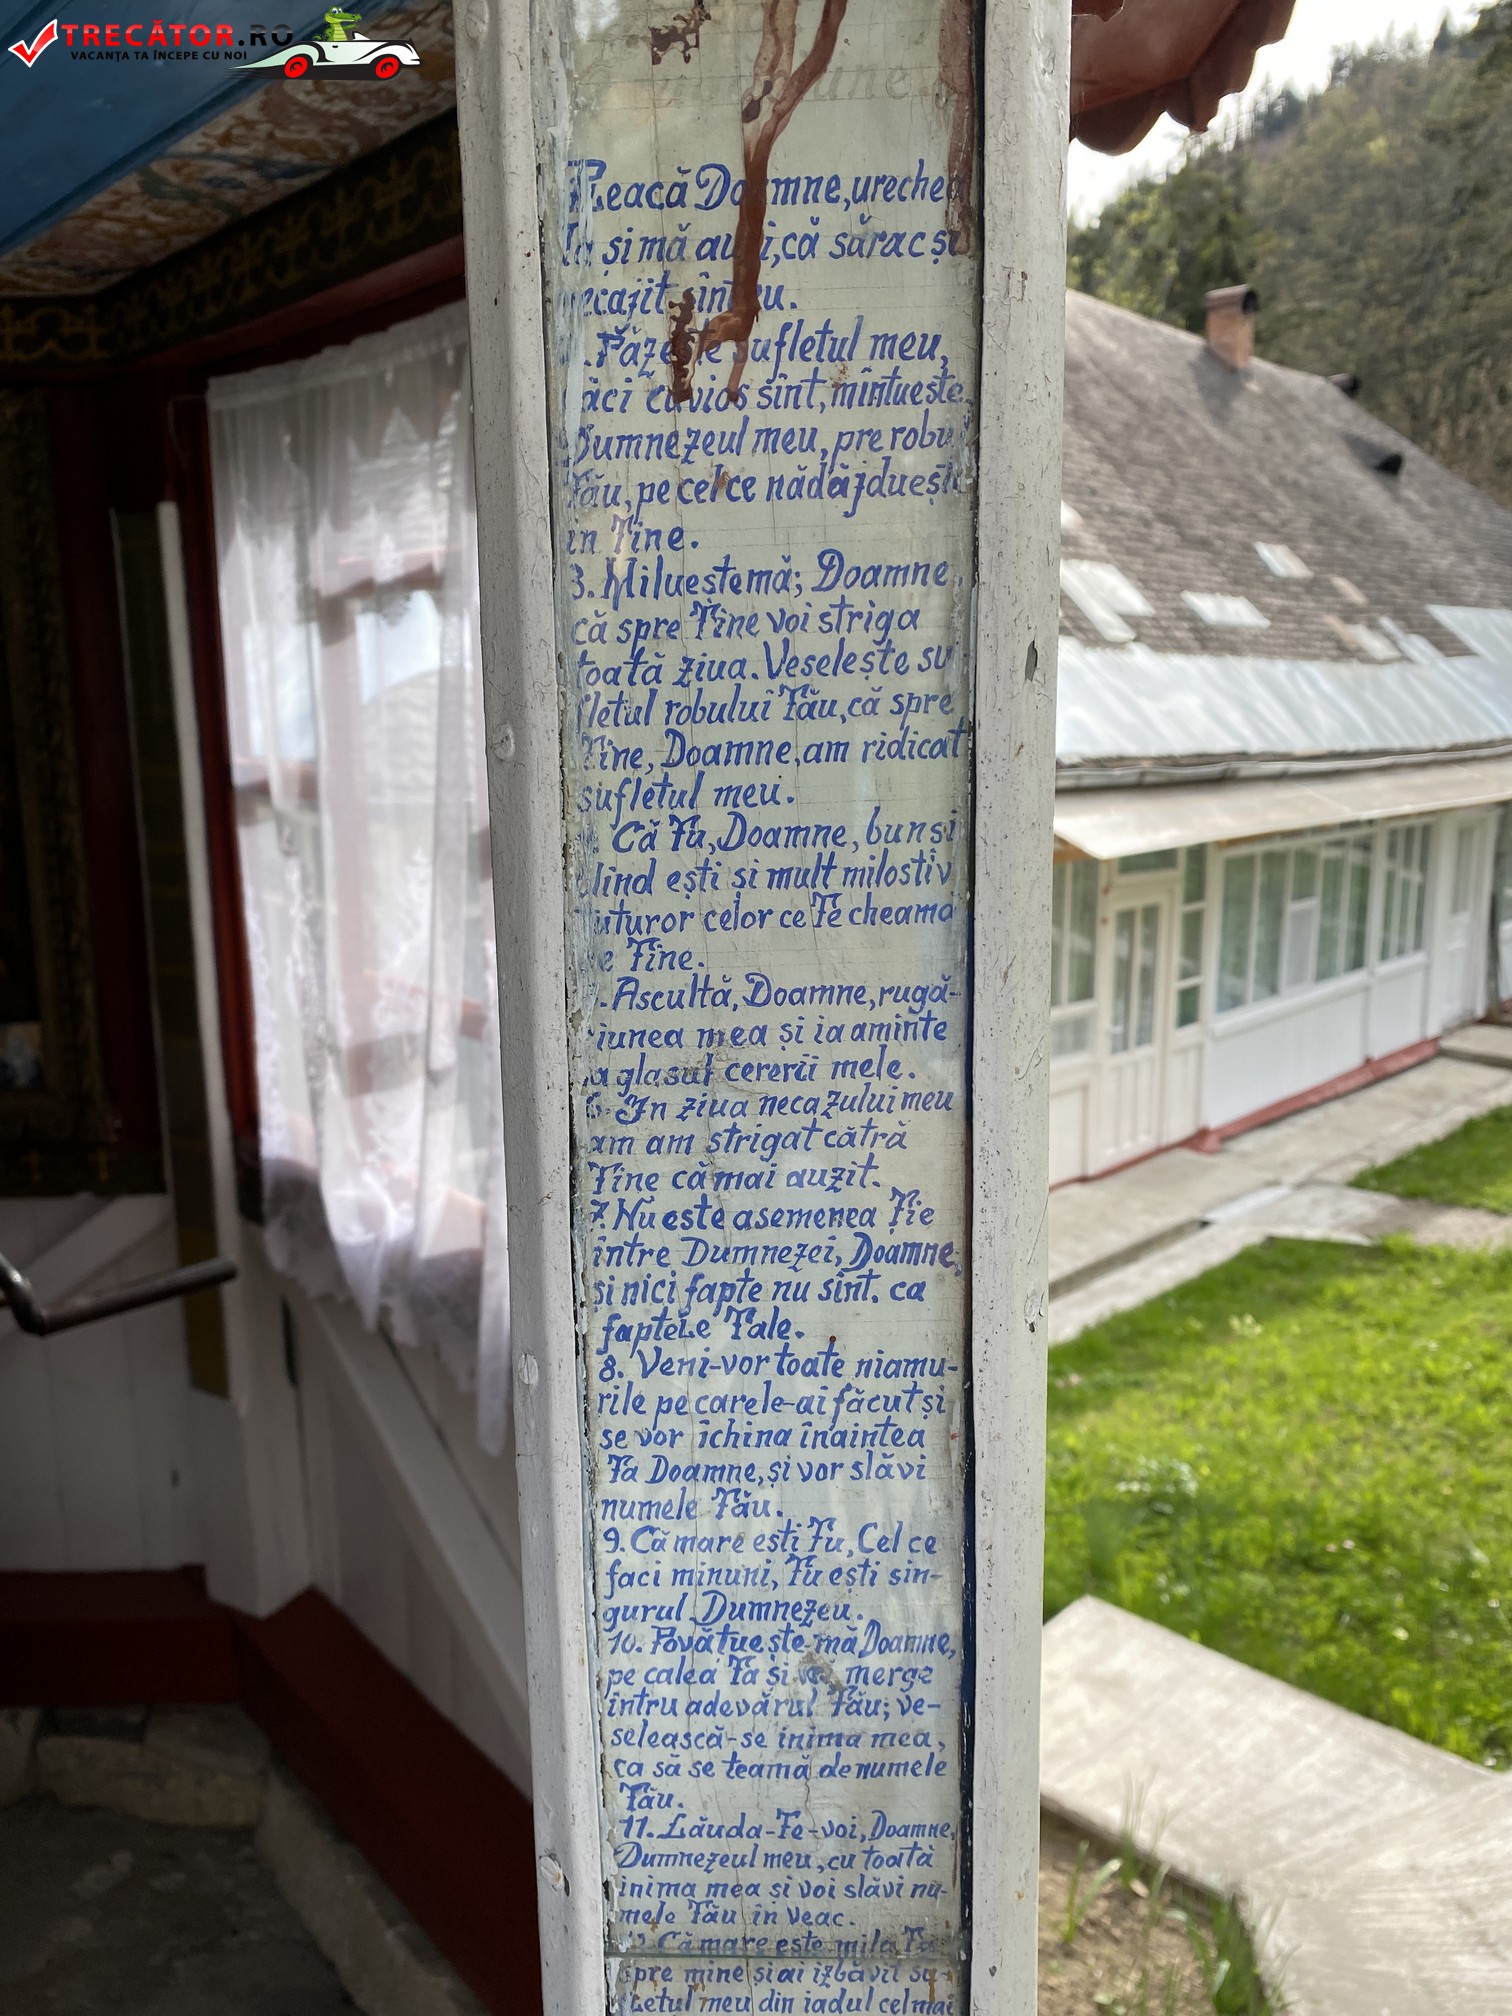 TRECĂTOR.RO
VACANȚA TA ÎNCEPE CU NOI
Pleacă Doamne, urechea
Ta și mă auzi, că sărac și
necajit sînt eu.
Păzește sufletul meu,
căci cuvios sînt, mîntuește,
Dumnezeul meu, pre robul
Tău, pe cel ce nădăjduește
in Tine.
3. Miluestemă; Doamne,
că spre Tine voi striga
toată ziua. Veselește su-
fletul robului Tău, că spre
Tine, Doamne, am ridicat
sufletul meu.
Că Tu, Doamne, bun și
blind ești și mult milostiv
tuturor celor ce Te cheama
pe Tine.
. Ascultă, Doamne, rugă-
ciunea mea și ia aminte
la glasul cererii mele.
6. In ziua necazului meu
am am strigat cătră
Tine că mai auzit.
7. Nu este asemenea Ție
intre Dumnezei, Doamne,
și nici fapte nu sînt. ca
faptele Tale.
8. Veni-vor toate niamu-
rile pe carele-ai făcut și
se vor ichina înaintea
Ta Doamne, și vor slăvi
numele Tău.
9. Că mare ești Tu, Cel ce
faci minuni, Tu ești sin-
gurul Dumnezeu.
10. Povătuește-mă Doamne,
pe calea Ta și merge
intru adevărul Tău; ve-
selească-se inima mea,
ca să se teamă de numele
Tău.
11. Lăuda-Te-voi, Doamne,
Dumnezeul meu, cu toată
inima mea și voi slăvi nu-
mele Tău in veac.
12 Că mare este mila Ta
spre mine și ai izbăvit su-
fletul meu din iadul cel mai